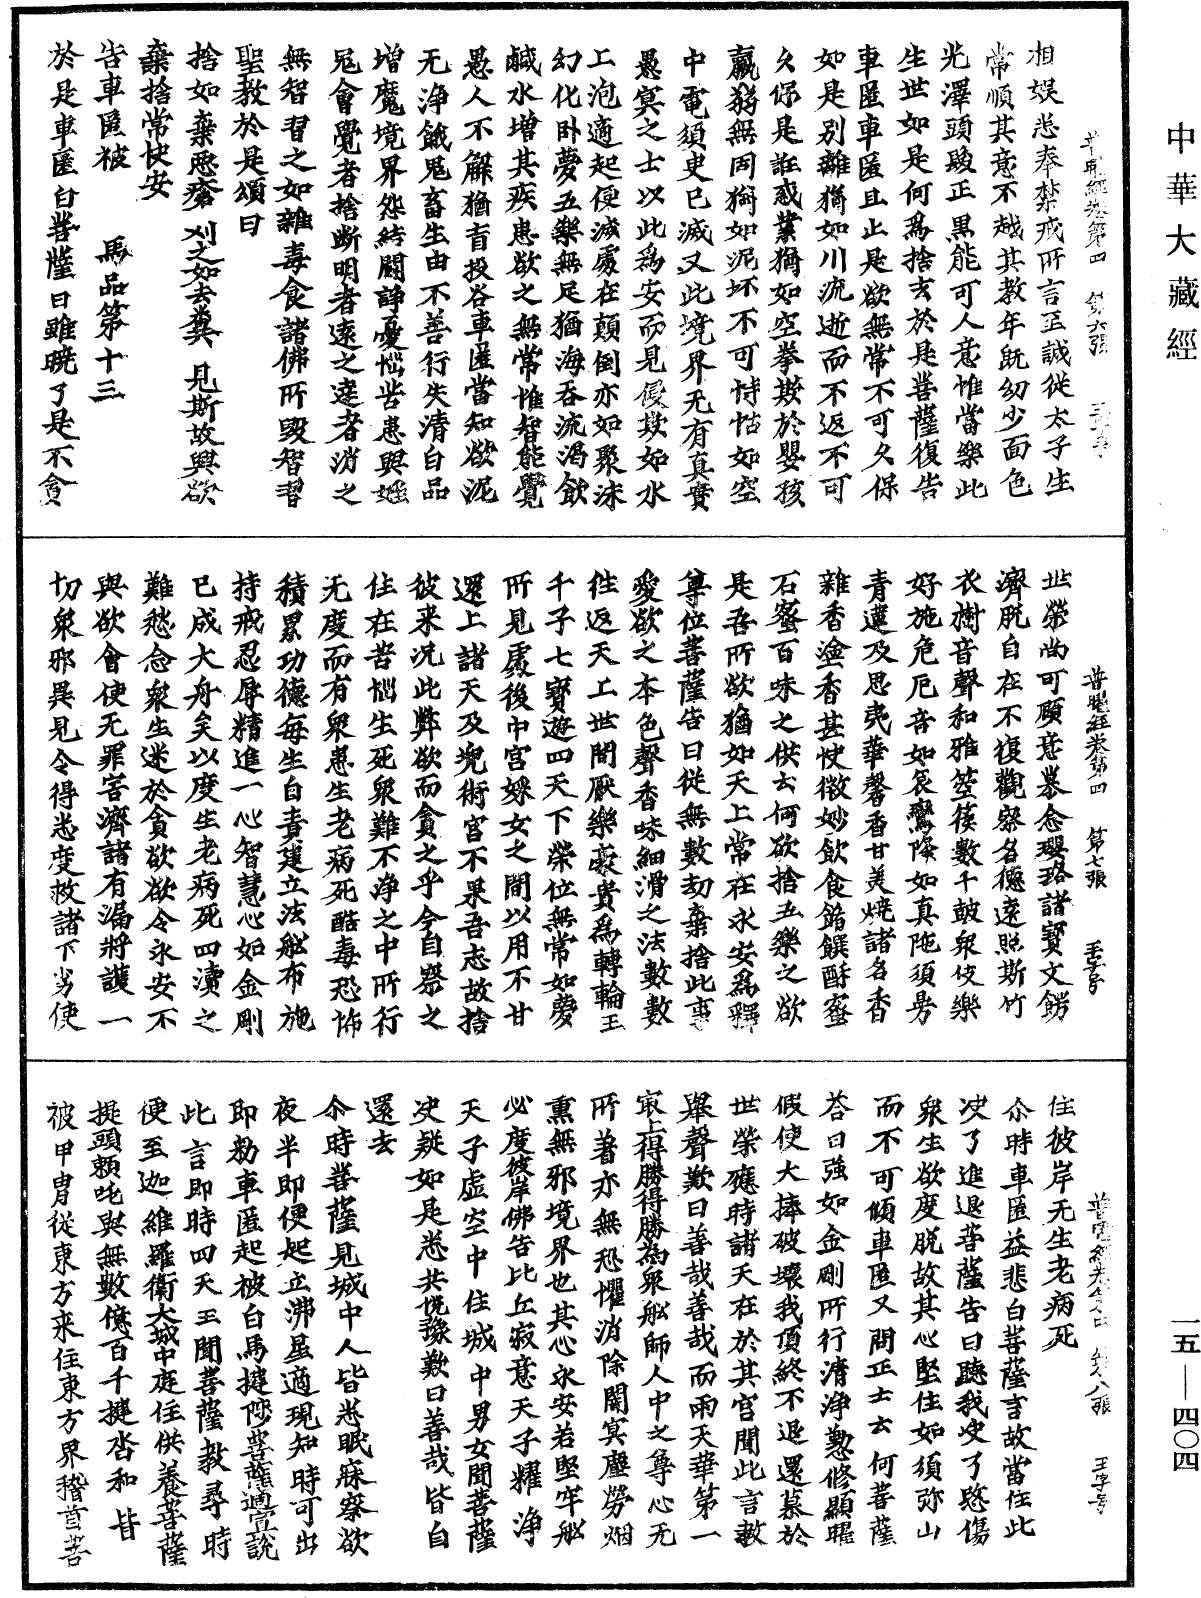 中華大藏經
普曜經卷第四　第六張
相娛悉奉禁戒所言至誠從太子生
常順其意不越其教年既幼少面色
光澤頭髮正黑能可人意惟當樂此
生世如是何為捨去於是菩薩復告
車匿車匿且止是欲無常不可久保
如是別離猶如川流逝而不返不可
久保是誑惑業猶如空拳欺於嬰孩
羸弱無固猶如泥坏不可恃怙如空
中電須臾已滅又此境界无有真實
愚冥之士以此為安而見侵欺如水
上泡適起便滅處在顛倒亦如聚沫
幻化卧夢五樂無足猶海吞流渴飲
鹹水增其疾患欲之無常惟智能覺
愚人不解猶盲投谷車匿當知欲泥
无淨餓鬼畜生由不善行失清白品
增魔境界怨結鬪諍憂惱苦患與婬
冤會覺者捨斷明者遠之達者消之
無智習之如雜毒食諸佛所毀智習
聖教於是頌曰
捨如棄惡瘡　刈之如去糞　見斯故興欲
棄捨常快安
告車匿被　馬品第十三
於是車匿白菩薩曰雖曉了是不貪
世榮尚可顧意慕念瓔珞諸寶文飾
濟脫自在不復觀察名德遠照斯竹
衣樹音聲和雅箜篌數千皷眾伎樂
好施危厄音如哀鸞降如真陁須曼
青蓮及思夷華馨香甘美燒諸名香
雜香塗香甚快微妙飲食餚饌酥蜜
石蜜百味之供去何欲捨五樂之欲
是吾所欲猶如天上常在永安為釋
尊位菩薩告曰從無數劫棄捨此事
愛欲之本色聲香味細滑之法數數
往返天上世間厭樂豪貴為轉輪王
千子七寶遊四天下榮位無常如夢
所見處後中宮婇女之間以用不甘
還上諸天及兜術宮不果吾志故捨
彼來況此弊欲而貪之乎今自察之
住在苦惱生死眾難不淨之中所行
无度而有眾患生老病死酷毒恐怖
積累功德每生自責建立法船布施
持戒忍辱精進一心智慧心如金剛
已成大舟矣以度生老病死四瀆之
難愍念眾生迷於貪欲欲令永安不
與欲會使无罪害濟諸有漏將護一
切眾邪異見令得悉度救諸下劣使
普曜經卷第四　第七張
住彼岸无生老病死
尒時車匿益悲白菩薩言故當住此
決了進退菩薩告曰聽我決了愍傷
眾生欲度脫故其心堅住如須弥山
而不可傾車匿又問正士云何菩薩
荅曰強如金剛所行清淨懃修顯曜
假使大捧破壞我頂終不退還慕於
世榮應時諸天在於其宮聞此言教
舉聲歎曰善哉善哉而雨天華第一
冣上得勝得勝為眾船師人中之尊心无
所著亦無恐懼消除闇冥塵勞烟
熏無邪境界也其心永安若堅牢船
必度彼岸佛告比丘寂意天子耀淨
天子虛空中住城中男女聞菩薩
決疑如是悉共悅豫歎曰善哉皆自
還去
尒時菩薩見城中人皆悉眠寐察欲
夜半即便起立沸星適現知時可出
即勑車匿起被白馬揵陟菩薩適宣說
此言即時四天王聞菩薩教尋時
便至迦維羅衛大城中庭住供養菩薩
提頭賴吒與無數億百千揵沓和皆
被甲胄從東方來住東方界稽首菩
一五—四〇四